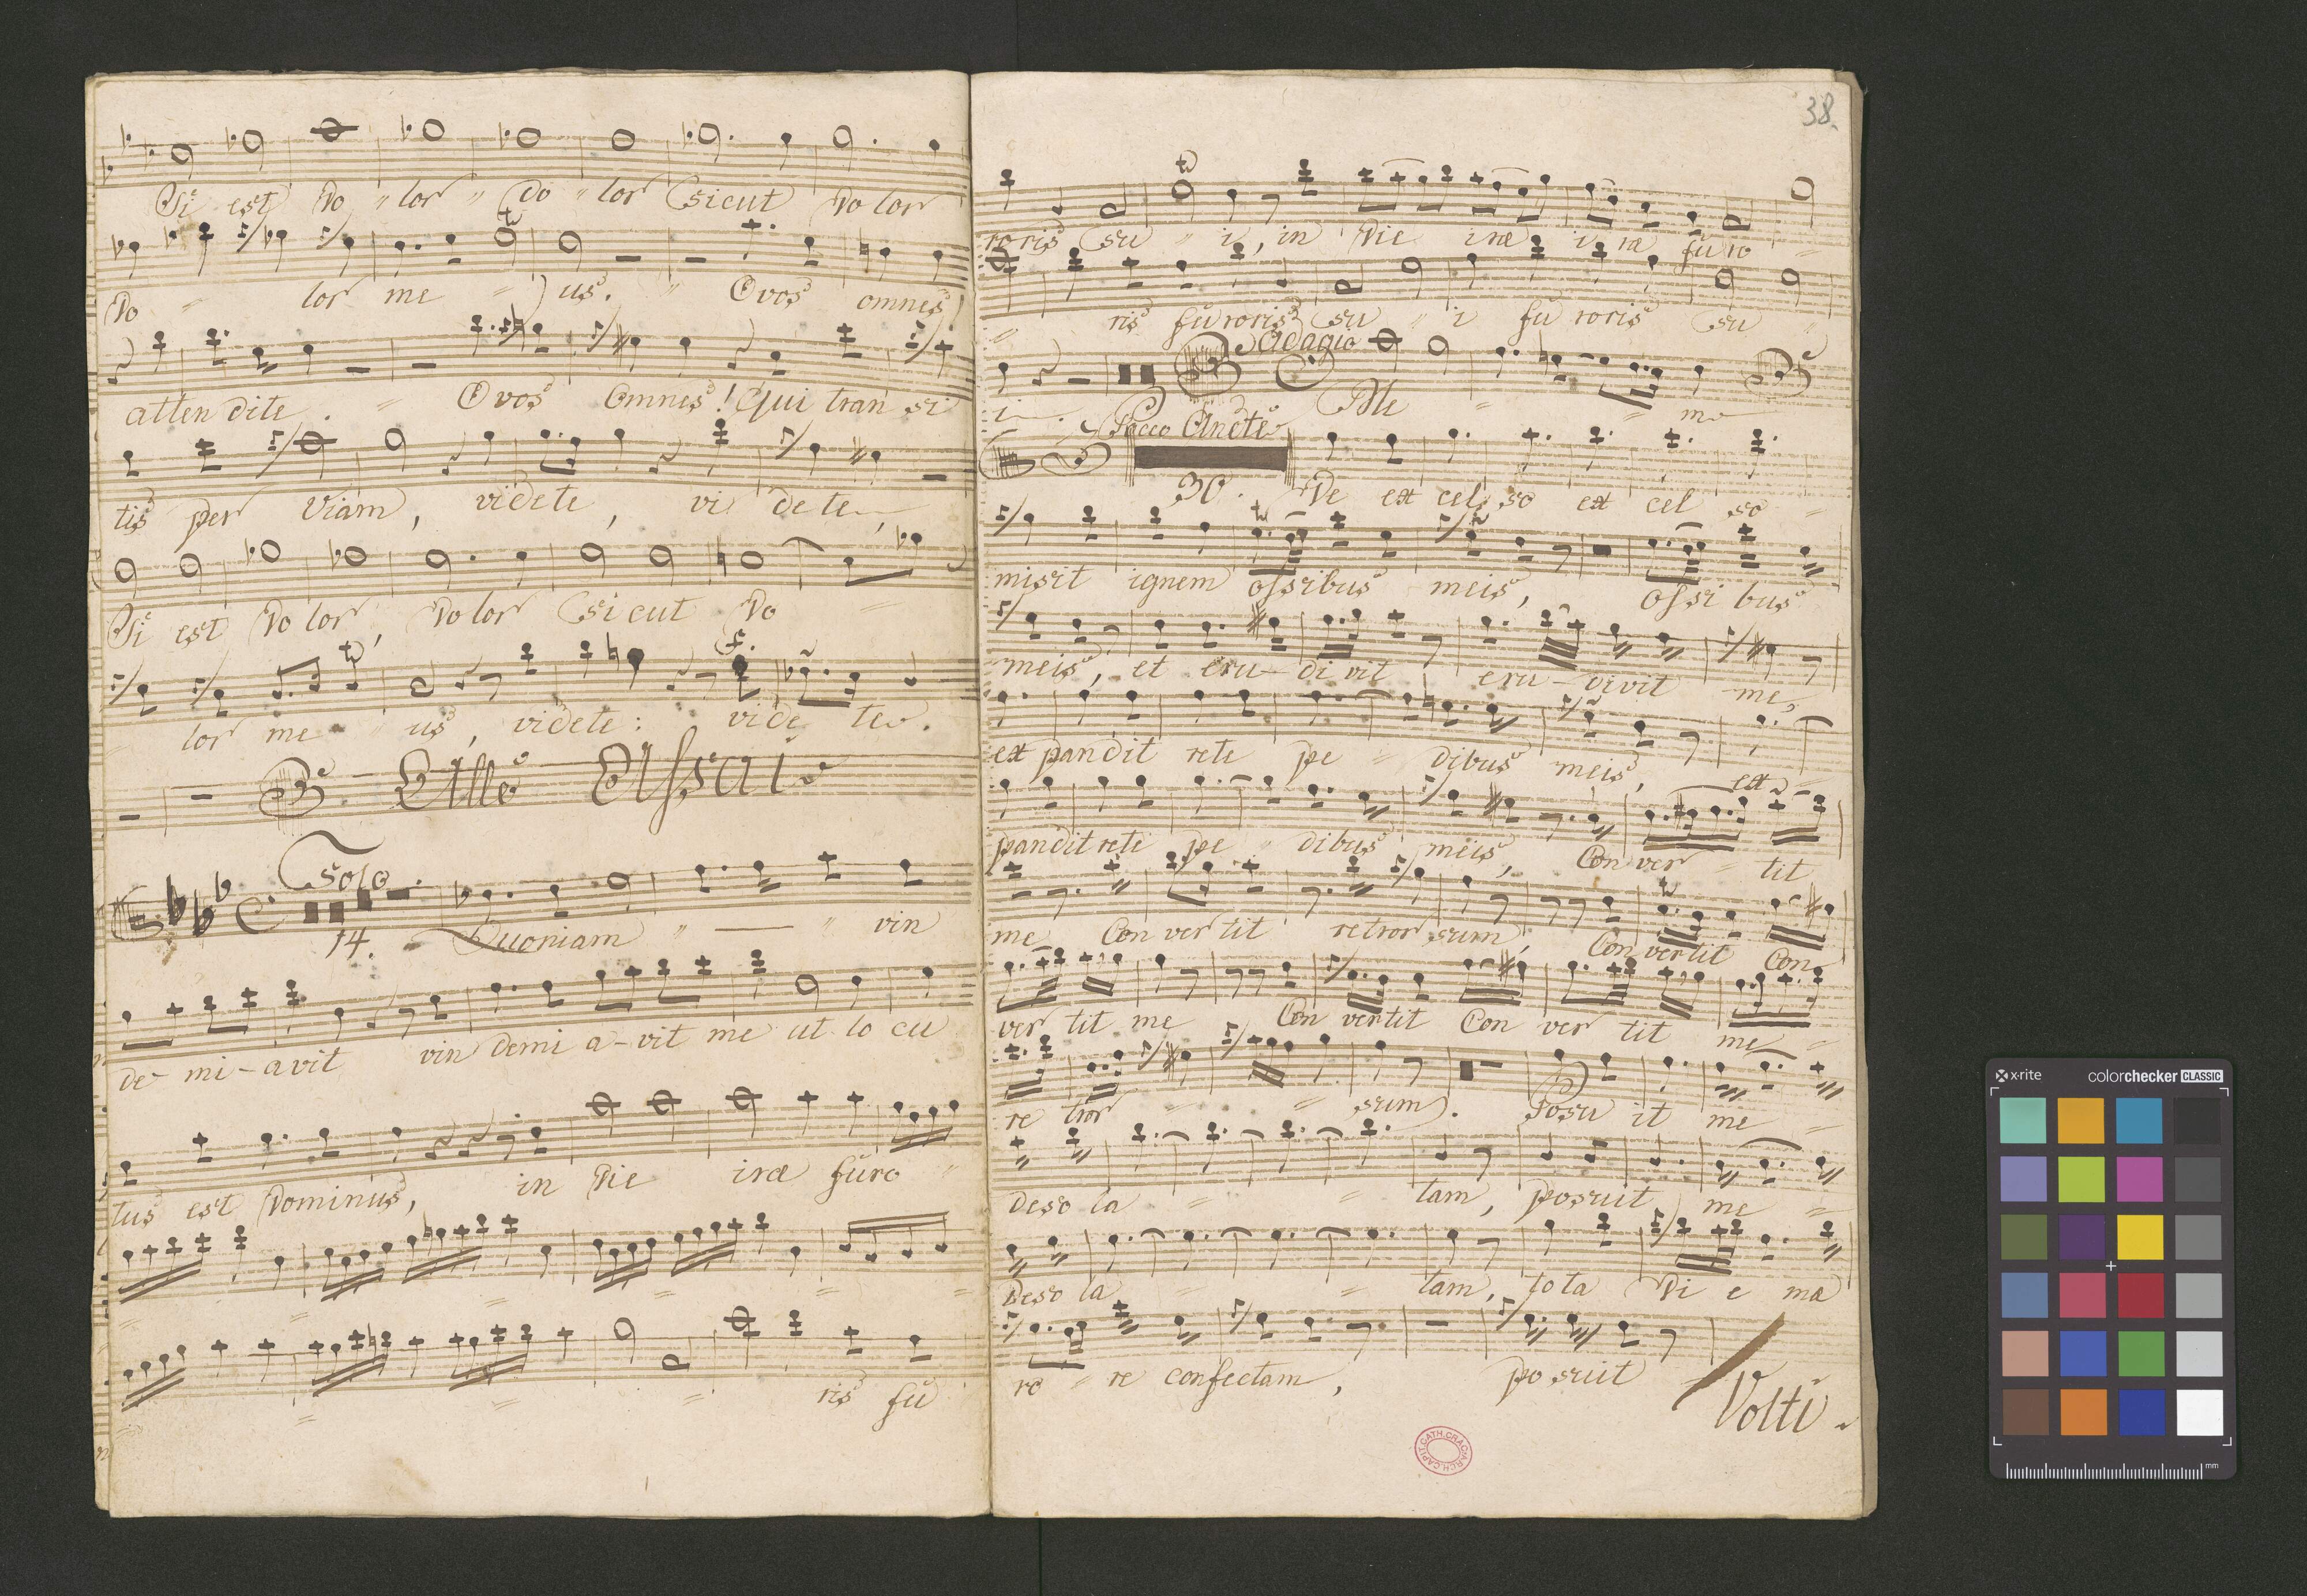 Si est Do " lor " do " lor sicut Dolor
Do = lor me = us. " O vos omnes
atten dite. = O vos omnes! qui tran si
tis per viam, videte, vi dete,
Si est Dolor, Dolor sicut Do =
= lor me " us, videte: vide te.
Allo Assai
Solo.
14. Quoniam " — " vin
de- mi - avit vin demi a-vit me ut lo cu
tus est Dominus, in Die iræ furo "
= = = = =
= = = ris fu
38.
roris su " i, in Die iræ i ræ furo =
= ris fu roris su " i fu roris su "
Adagio
i. Ale = = me
Andte
30. De ex cel so ex cel so =
misit ignem ossibus meis, ossi bus
meis, et eru - di vit eru - divit me,
ex pandit rete pe = dibus meis, ex =
pandit rete pe " dibus meis, Con ver " tit
me Con ver tit retror sum, Con vertit Con
ver tit me Con vertit Con ver tit me =
re tror = = sum. Posu it me =
Deso la = = tam, posuit me =
Deso la = = tam, tota Di e mæ
ro = re confectam, po suit
Volti
CAPIT. CATH. CRAC. ARCH.
x-rite colorchecker CLASSIC
mm